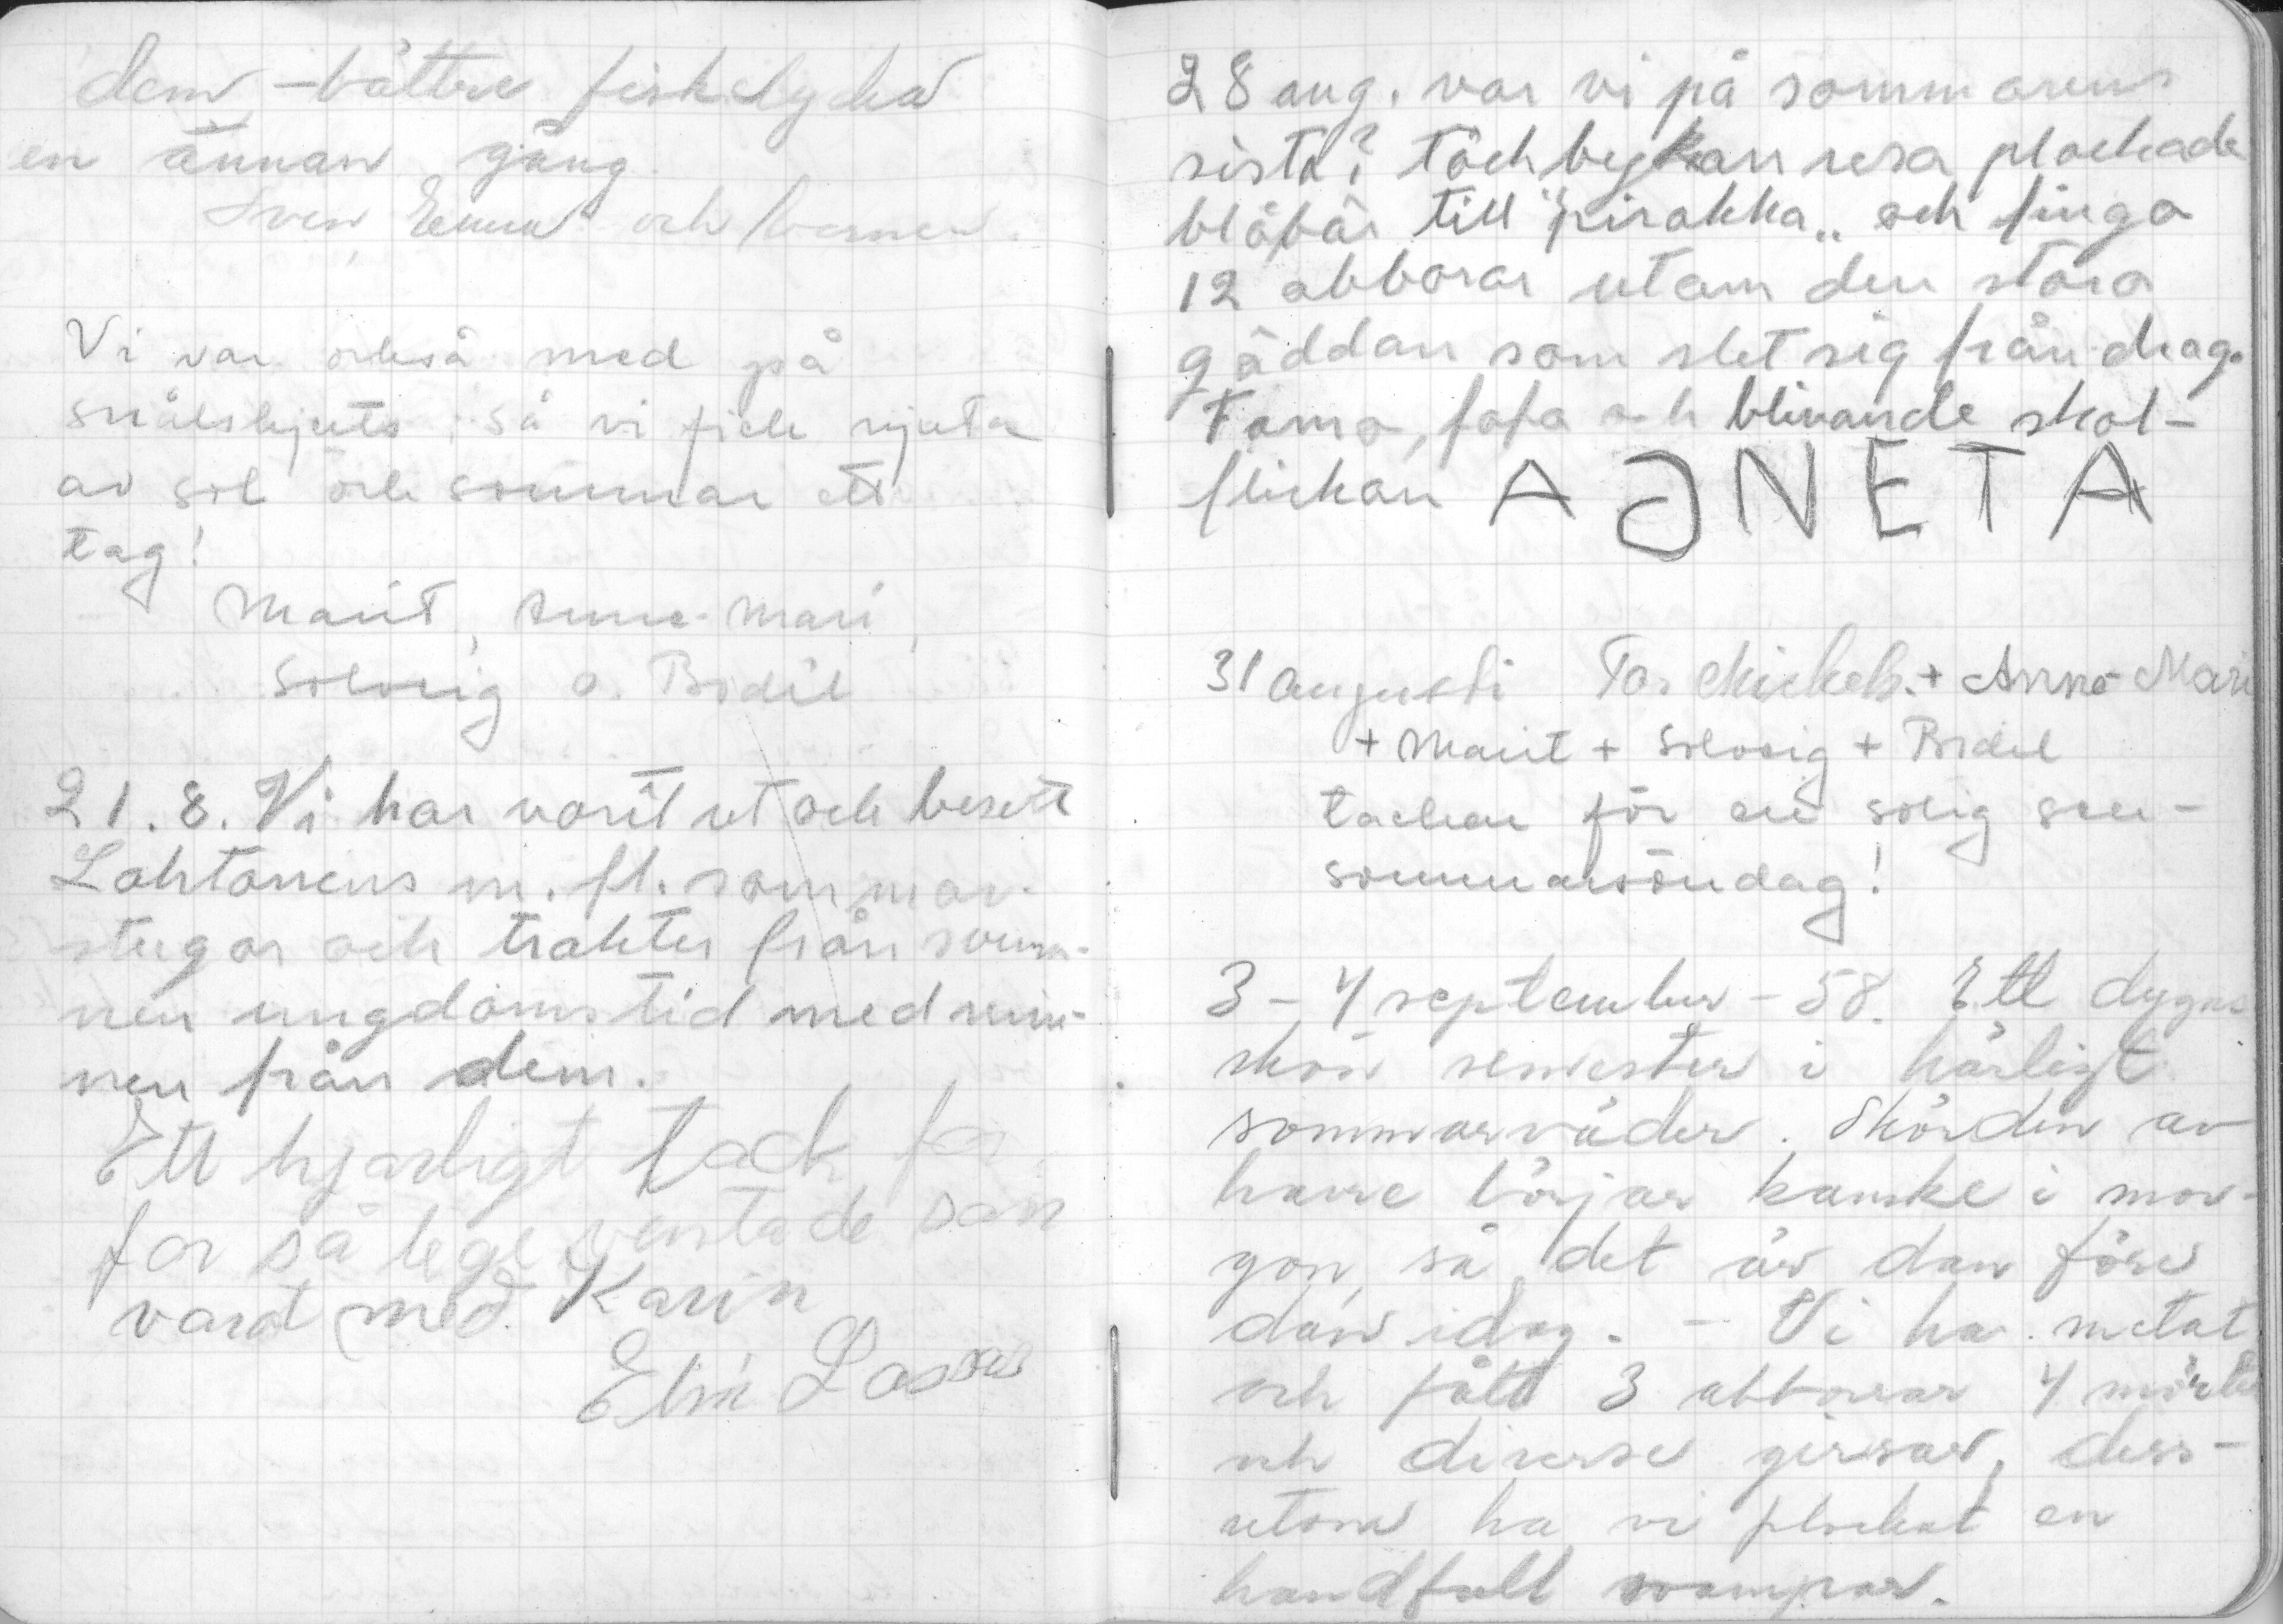 dem, - bättre fiskelycka
en annan gång
Sven, och barnen.
Vi var också med på
snålskjuts, så vi fick njuta
av sol och sommar ett
tag!
Marit, Anne-Mari,
Solveig o. Bodil
21.8. Vi har varit ut och besett
Lahtonens m. fl. sommar-
stugor och trakter från svun-
nen ungdomstid med min-
nen från dem.
Ett hjärligt tack för
för så lege som
varat med. Karin
Elin
28 aug. var vi på sommarens
sista? resa plockade
blåbär till "pirakka" och finga
12 abborar utom den stora
gäddan som slet sig från drag.
Fama, fafa och blivande skol-
flickan AGNETA
31 augusti Tor Mickels. + Anne-Mari
+ Marit + Solveig + Bodil
tackar för en solig sen-
sommarsöndag!
3 - 4 september - 58. Ett dygns
skön semester i härligt
sommarväder. Skörden av
havre börjar kanske i mor-
gon, så det är dan före
dan idag. - Vi ha metat
och fått 3 abborrar 4 mörtar
och diverse girsar, dess-
utom ha vi plockat en
handfull svampar.